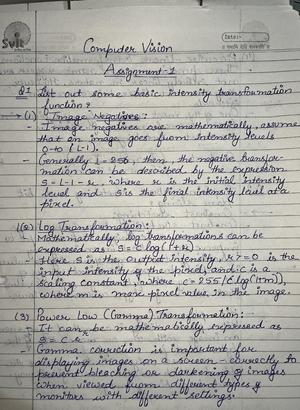 SVIT
Date:-
Computer Vision
Assignment-1
Q1 List out some basic intensity transformation
function?
→ (1) Image Negatives:
- Image negatives are mathematically, assume
that an image goes from intensity levels
0 to (L-1).
- Generally L=256, then, the negative transfor-
mation can be described by the expression
S = L-1-r, where r is the initial intensity
level and S is the final intensity level at a
pixel.
(2) Log Transformation:
- Mathematically, log transformations can be
expressed as S = c log(1+r)
- Here S is the output intensity, r>=0 is the
input intensity of the pixel, and c is a
scaling constant, where c = 255/(log(1+m)),
where m is max pixel value in the image.
(3) Power Low (Gamma) Transformation:
- It can be mathematically expressed as
S = c r
- Gamma correction is important for
displaying images on a screen correctly to
prevent bleaching or darkening of images
when viewed from different types of
monitors with different settings.